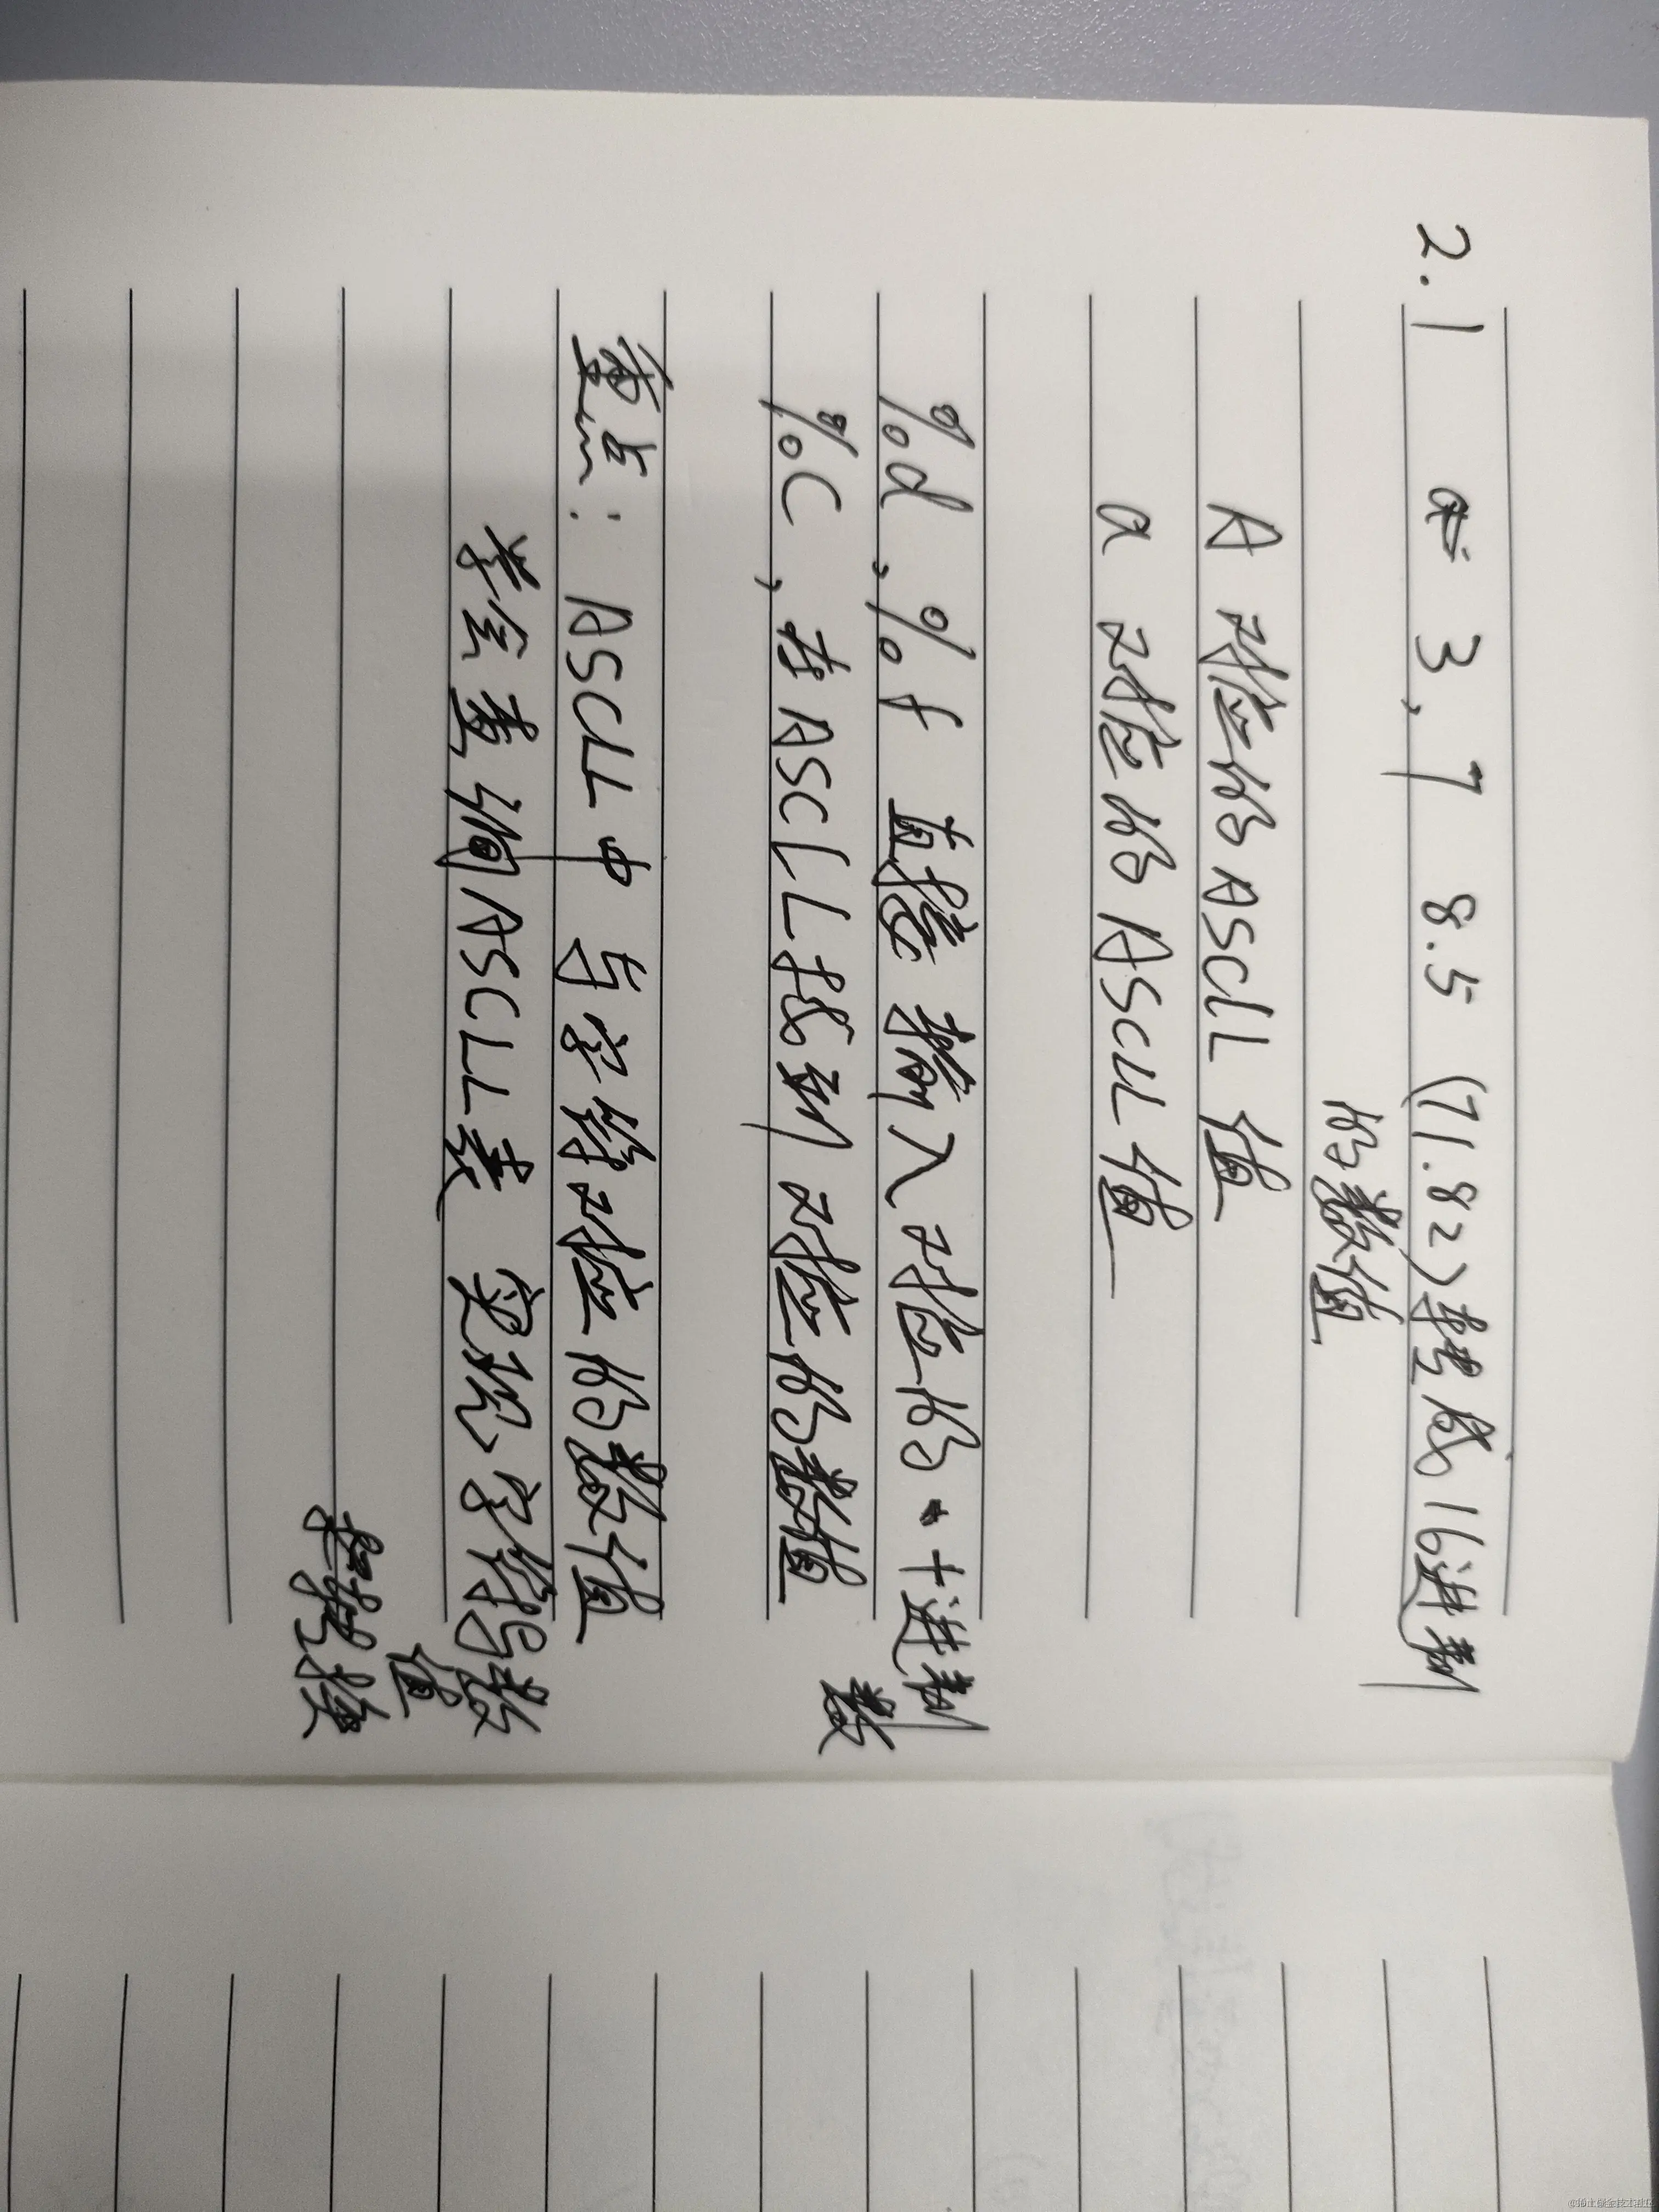 2.1 a= 3, 7 8.5 (71.82)转成16进制
的数值
A 对应的ASCLL 值
a 对应的ASCLL值
%d,%f 直接输入对应的十进制
数
%C,在ASCLL找到对应的数值
重点: ASCLL中与字符对应的数值
学会查询ASCLL表 实现字符与数
值
转换